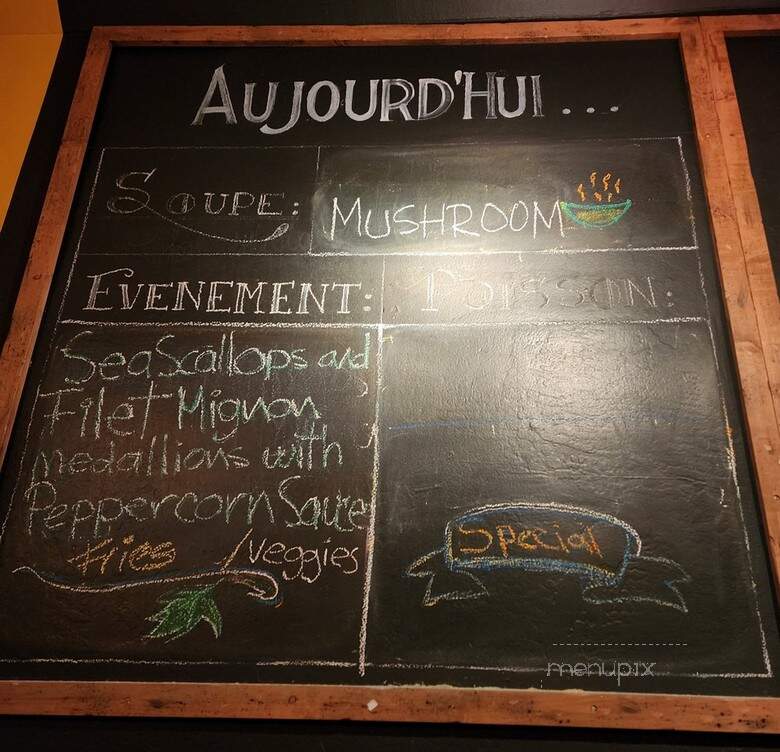 AUJOURD'HUI ...
SOUPE: MUSHROOM
EVENEMENT: POISSON:
Sea Scallops and
Filet Mignon
medallions with
Peppercorn Sauce
Fries /veggies
Special
menupix